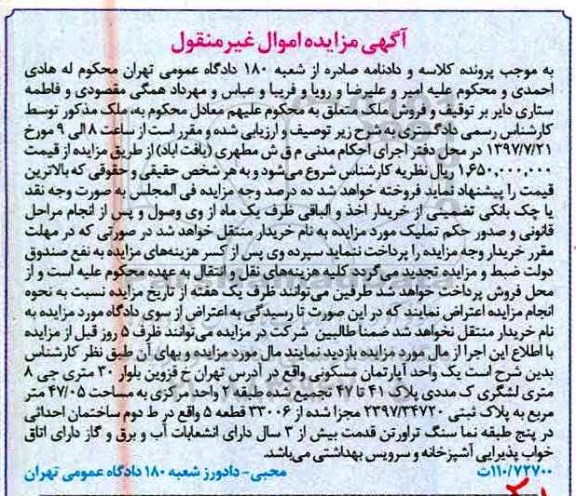 آگهی مزایده اموال غیر منقول
به موجب پرونده کلاسه و دادنامه صادره از شعبه ۱۸۰ دادگاه عمومی تهران محکوم له هادی
احمدی و محکوم علیه امیر و علیرضا و رویا و فریبا و عباس و مهرداد همگی مقصودی و فاطمه
ستاری دایر بر توقیف و فروش ملک متعلق به محکوم علیهم معادل محکوم به، ملک مذکور توسط
کارشناس رسمی دادگستری به شرح زیر توصیف و ارزیابی شده و مقرر است از ساعت ۸ الی ۹ مورخ
۱۳۹۷/۷/۲۱ در محل دفتر اجرای احکام مدنی م ق ش مطهری (یافت اباد) از طریق مزایده از قیمت
۱,۶۵۰,۰۰۰,۰۰۰ ریال نظریه کارشناس شروع می‌شود و به هر شخص حقیقی و حقوقی که بالاترین
قیمت را پیشنهاد نماید فروخته خواهد شد ده درصد وجه مزایده فی المجلس به صورت وجه نقد
یا چک بانکی تضمینی از خریدار اخذ و الباقی ظرف یک ماه از وی وصول و پس از انجام مراحل
قانونی و صدور حکم تملیک مورد مزایده به نام خریدار منتقل خواهد شد در صورتی که در مهلت
مقرر خریدار وجه مزایده را پرداخت ننماید سپرده وی پس از کسر هزینه‌های مزایده به نفع صندوق
دولت ضبط و مزایده تجدید می‌گردد کلیه هزینه‌های نقل و انتقال به عهده محکوم علیه است و از
محل فروش پرداخت خواهد شد طرفین می‌توانند ظرف یک هفته از تاریخ مزایده نسبت به نحوه
انجام مزایده اعتراض نمایند که در این صورت تا رسیدگی به اعتراض از سوی دادگاه مورد مزایده به
نام خریدار منتقل نخواهد شد ضمنا طالبین شرکت در مزایده می‌توانند ظرف ۵ روز قبل از مزایده
با اطلاع این اجرا از مال مورد مزایده بازدید نمایند مال مورد مزایده و بهای آن طبق نظر کارشناس
بدین شرح است یک واحد آپارتمان مسکونی واقع در آدرس تهران خ قزوین بلوار ۳۰ متری جی ۸
متری لشگری ک مددی پلاک ۴۱ تا ۴۷ تجمیع شده طبقه ۲ واحد مرکزی به مساحت ۴۷/۰۵ متر
مربع به پلاک ثبتی ۲۳۹۷/۳۴۷۲۰ مجزا شده از ۳۳۰۰۶ قطعه ۵ واقع در ط دوم ساختمان احداثی
در پنج طبقه نما سنگ تراورتن قدمت بیش از ۳ سال دارای انشعابات آب و برق و گاز دارای اتاق
خواب پذیرایی آشپزخانه و سرویس بهداشتی می‌باشد.
۱۱۰/۷۲۷۰۰ت محبی - دادورز شعبه ۱۸۰ دادگاه عمومی تهران